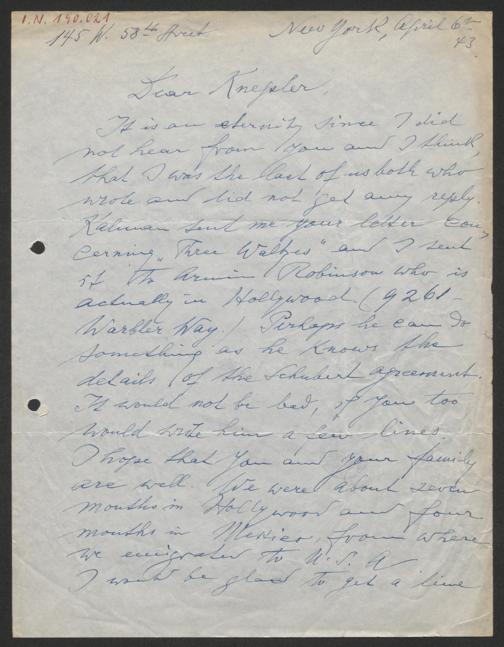 I.N. 190.021
145 W. 58th Street
New York, April 6th
43.
Dear Knepler,
It is an eternity since I did
not hear from you and I think,
that I was the last of us both who
wrote and did not get any reply.
Kalman sent me your letter con-
cerning „Three Waltzes" and I sent
it to Armin Robinson who is
actually in Hollywood (9261-
Warbler Way.) Perhaps he can do
something as he knows the
details of the Schubert agreement.
It would not be bad, if you too
would write him a few lines.
I hope that you and your family
are well. We were about seven
months in Hollywood and four
months in Mexico, from where
we emigrated to U.S.A
I would be glad to get a line